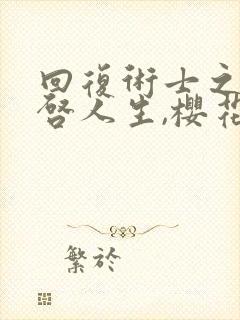 回復術士之
啓人生,櫻花
繁於